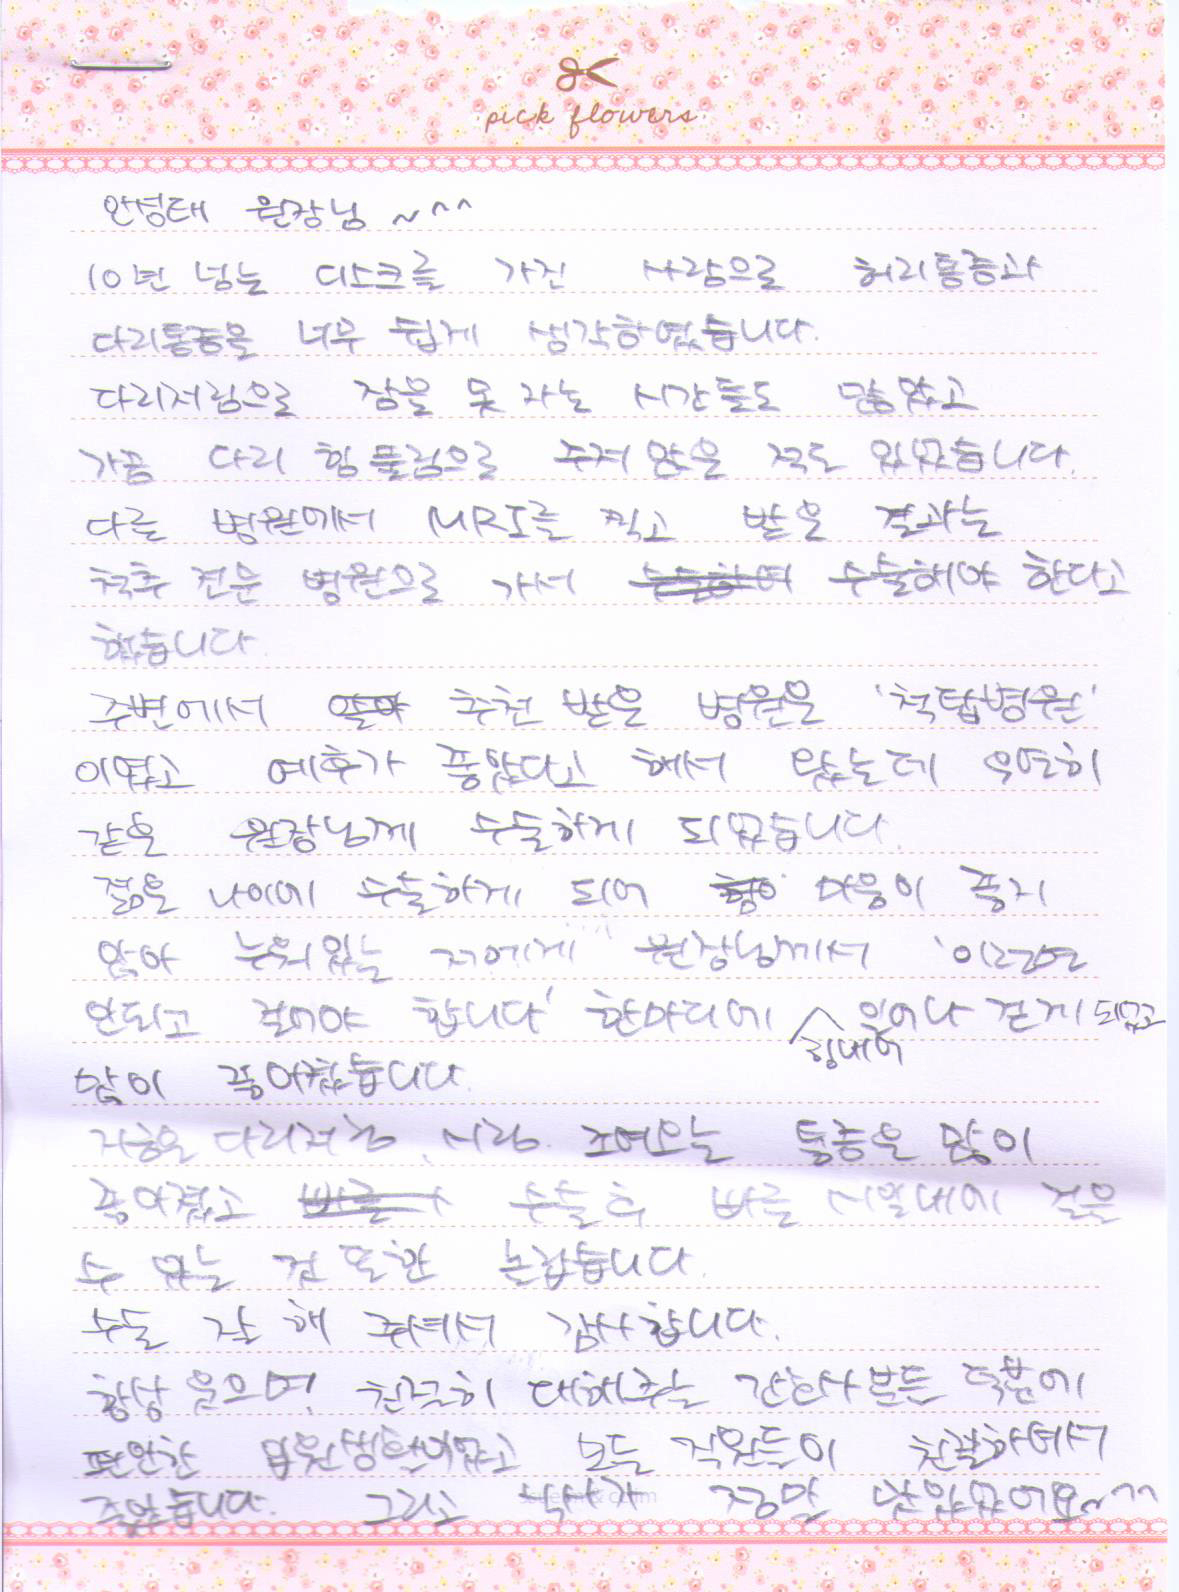 pick flowers
안성태 원장님 ~^^
10년 넘는 디스크를 가진 사람으로 허리통증과
다리통증을 너무 쉽게 생각하였습니다.
다리저림으로 잠을 못 자는 시간들도 많았고
가끔 다리 힘풀림으로 주저 앉은 적도 있었습니다.
다른 병원에서 MRI를 찍고 받은 결과는
척추 전문 병원으로 가서 수술해야 한다고
했습니다.
주변에서 추천 받은 병원은 '척탑병원'
이였고 예후가 좋았다고 해서 왔는데 우연히
같은 원장님께 수술하게 되었습니다.
젊은 나이에 수술하게 되어 마음이 좋지
않아 누워있는 저에게 원장님께서 '이러면
안되고 걸어야 합니다' 한마디에 힘내어 일어나 걷게 되었고
많이 좋아졌습니다.
지금은 다리저림, 시림, 조여오는 통증은 많이
좋아졌고 수술 후 빠른 시일내에 걸을
수 있는 것 또한 놀랍습니다.
수술 잘 해 주셔서 감사합니다.
항상 웃으며, 친절히 대해주는 간호사분들 덕분에
편안한 입원생활이었고 모든 직원들이 친절하여서
좋았습니다. 그리고 식사가 정말 맛있었어요~^^